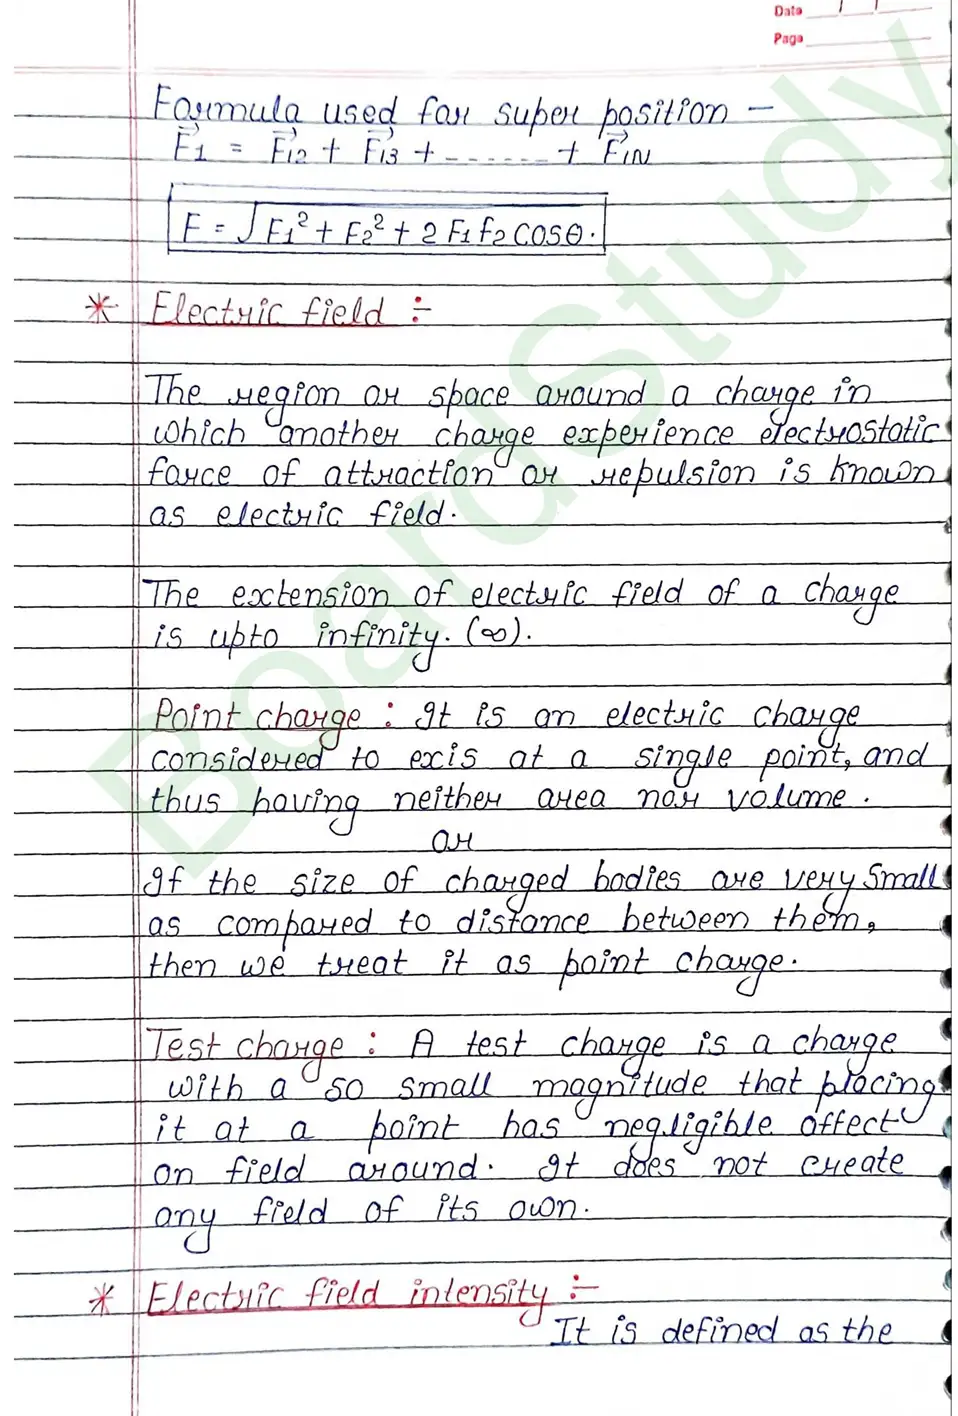 Date
Page
Formula used for super position –
F⃗1 = F⃗12 + F⃗13 + ------ + F⃗1N
F = √F1² + F2² + 2 F1 f2 cosθ.
* Electric field :-
The region or space around a charge in
which another charge experience electrostatic
force of attraction or repulsion is known
as electric field.
The extension of electric field of a charge
is upto infinity. (∞).
Point charge : It is an electric charge
considered to exis at a single point, and
thus having neither area nor volume.
or
If the size of charged bodies are very small
as compared to distance between them,
then we treat it as point charge.
Test charge : A test charge is a charge
with a so small magnitude that placing
it at a point has negligible affect
on field around. It does not create
any field of its own.
* Electric field intensity :-
It is defined as the
BoardStudy